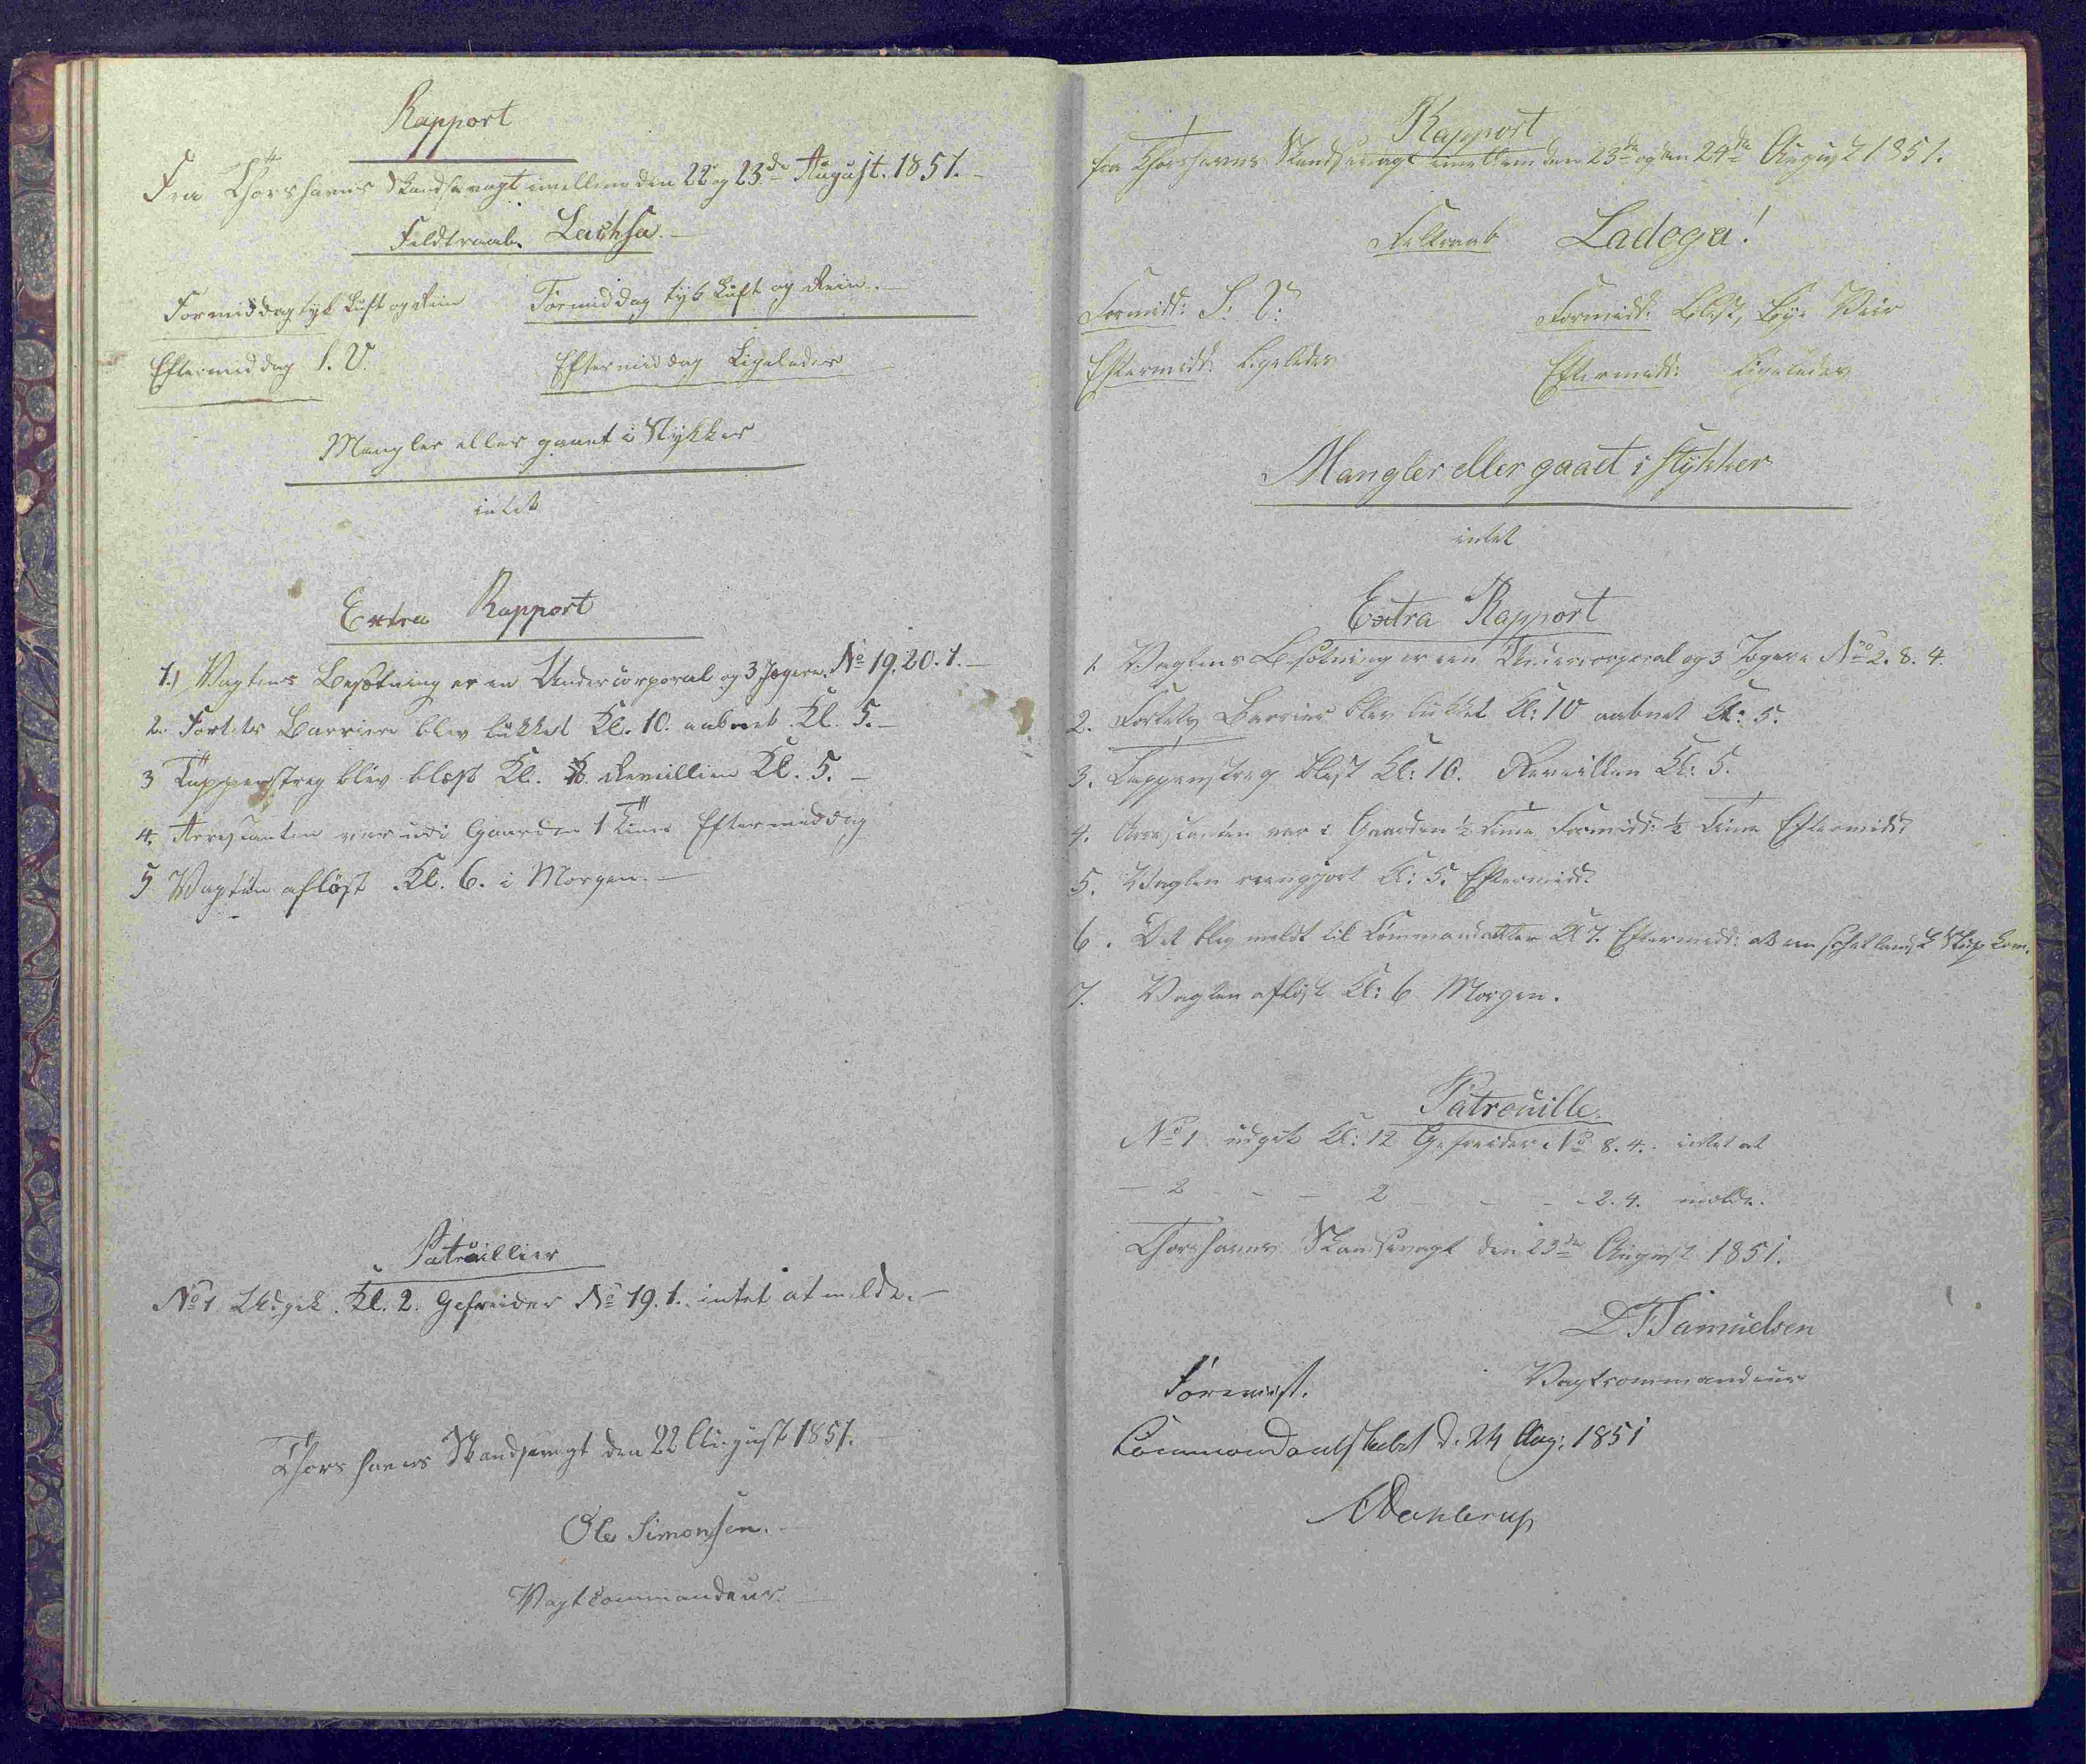 Rapport
Fra Thorshavns Skandsevagt imellem den 22 og 23de August. 1851.
Feldtraab Lachsa.
Formiddag tyk Luft og Rein Formiddag tyk Luft og Rein.
Eftermiddag S. V. Eftermiddag Ligeledes
Mangler eller gaaet i Stykker
intet
Extra Rapport
1.) Vagtens Besætning er en Undercorporal og 3 Jægere. No 19. 20. 1.
2. Fortets Barriere blev lukket Kl. 10. aabnet Kl. 5.
3 Tappenstreg blev blæst Kl. Reveillien Kl. 5.
4. Arrestanten var udi Gaarden 1 Time Eftermiddag
5 Vagten afløst Kl. 6. i Morgen.
Patruillier
No 1. Udgik. Kl. 2. Gefreider No 19. 1. intet at melde.
Thorshavns Skandsevagt den 22 August 1851.
Ole Simonsen.
Vagtcommandeur.
Rapport
fra Thorshavns Skandsevagt imellem den 23de og den 24de August 1851.
Feltraab Ladoga!
Formidd: S. V: Formidd: Blæst, Byge Veir
Eftermidd: Ligeledes Eftermidd: Ligeledes
Mangler eller gaaet i stykker
intet
Extra Rapport
1. Vagtens Besætning er een Undercorporal og 3 Jægere No 2. 8. 4.
2. Fortets Barriere blev lukket Kl: 10 aabnet Kl: 5.
3. Tappenstreg blæst Kl: 10. Reveillen Kl: 5.
4. Arrestanten var i Gaarden ½ Time Formidd: ½ Time Eftermidd:
5. Vagten reengjort Kl: 5. Eftermidd:
6. Det blev meldt til Commandanten Kl 7. Eftermidd: at een schetlandsk Slup kom.
7. Vagten afløst Kl: 6 Morgen.
Patrouille.
No 1 udgik Kl: 12 Gefreider No 8. 4. intet at
— 2 - - 2 - - - 2. 4. melde.
Thorshavns Skandsevagt den 23de August 1851.
D Samuelsen
Vagtcommandeur
Forevist.
Commandantskabet d. 24 Aug: 1851
Dahlerup